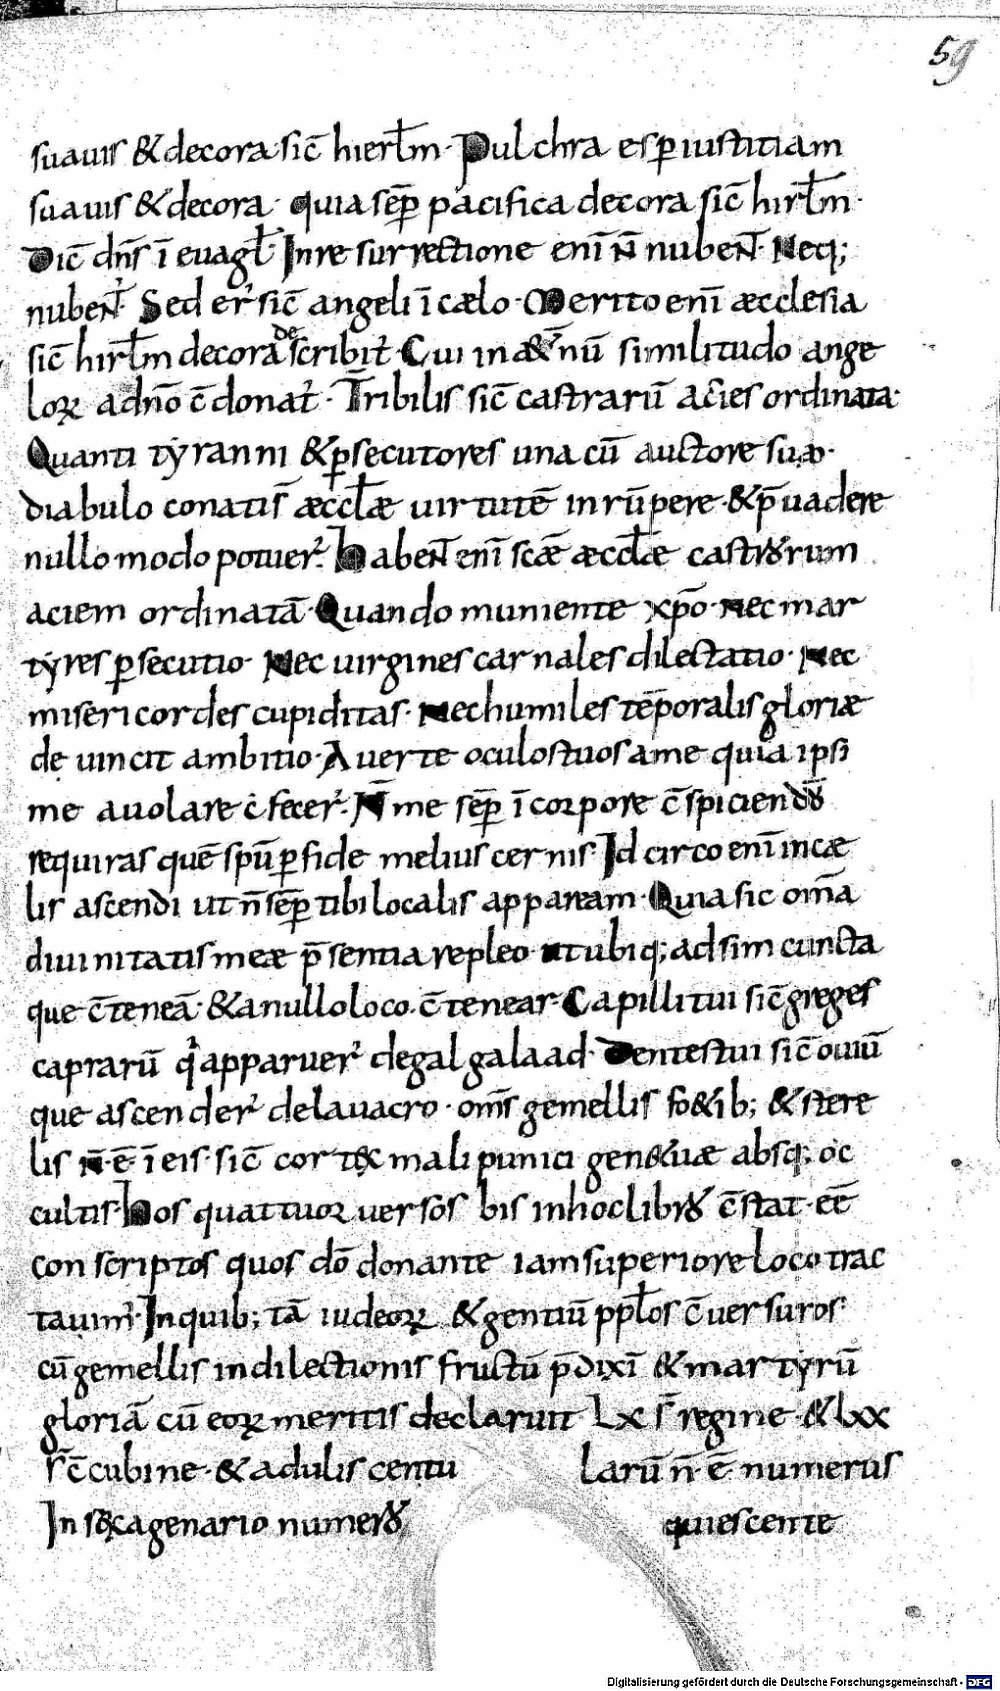 59
suauis & decora sic̄ hierl̄m· Pulchra es p̱ iustitiam
suauis & decora· quia sep̄ pacifica decora sic̄ hirl̄m·
Dic̄ dn̄s ī euagl̄· In resurrectione enī n̄ nuben̄t· Neq;
nuben̄t· Sed er̓ sic̄ angeli ī cælo· Merito enī æcclesia
sic̄ hirl̄m decora describit̓· Cui in æt̄nū similitudo ange
loꝝ ad n̄o c̄donat̓· T̄ribilis sic̄ castrarū acīes ordinata·
Quanti tyranni & p̱secutores una cū auctore suæ·
diabulo conatis̄ æccl̄æ uirtutē inrūpere· & p̄uadere
nullo modo potuer̓· Haben̄t enī scǣ æccl̄æ castrorum
aciem ordinatā· Quando muniente xp̄o· nec mar
tyres p̱secutio· Nec uirgines carnales dilectatio· Nec
misericordes cupiditas· Nec humiles tēporalis gloriæ
deuincit ambitio· Auerte oculos tuos a me quia ipsi
me auolare fecer̓· N̄ me sep̄ ī corpore c̄spiciendō
requiras quē spū p̱ fide melius cernis· Idcirco enī in cæ
lis ascendi ut n̄ sep̄ tibi localis appaream· Quia sic om̄a
diuinitatis meæ p̄sentia repleo ut ubiq; adsim cuncta
que c̄teneā· & a nullo loco c̄tenear· Capilli tui sic̄ greges
caprarū q̓ apparuer̓ de gal galaad· Dentes tui sic̄ ouiū
que ascender̓ de lauacro· om̄s gemellis fo&ib; & stere
lis n̄· ē· ī eis· sic̄ cortex mali punici gen& uæ absq; oc
cultis· Hos quattuoꝛ uersos̄ bis in hoc libro c̄stat· eē
conscriptos quos dō donante iam superiore loco trac
tauim̓· In quib; tā iudeoꝝ & gentiū ppl̄os c̄uersuros·
cū gemellis in dilectionis fructū p̄dixī & martyrū
gloriā cū eoꝝ meritis declaruit· Lx s̄ regine· & lxx
s̄ c̄cubine· & adulis centu larū n̄· ē· numerus
In sexagenario numero quiescente
Digitalisierung gefördert durch die Deutsche Forschungsgemeinschaft - DFG